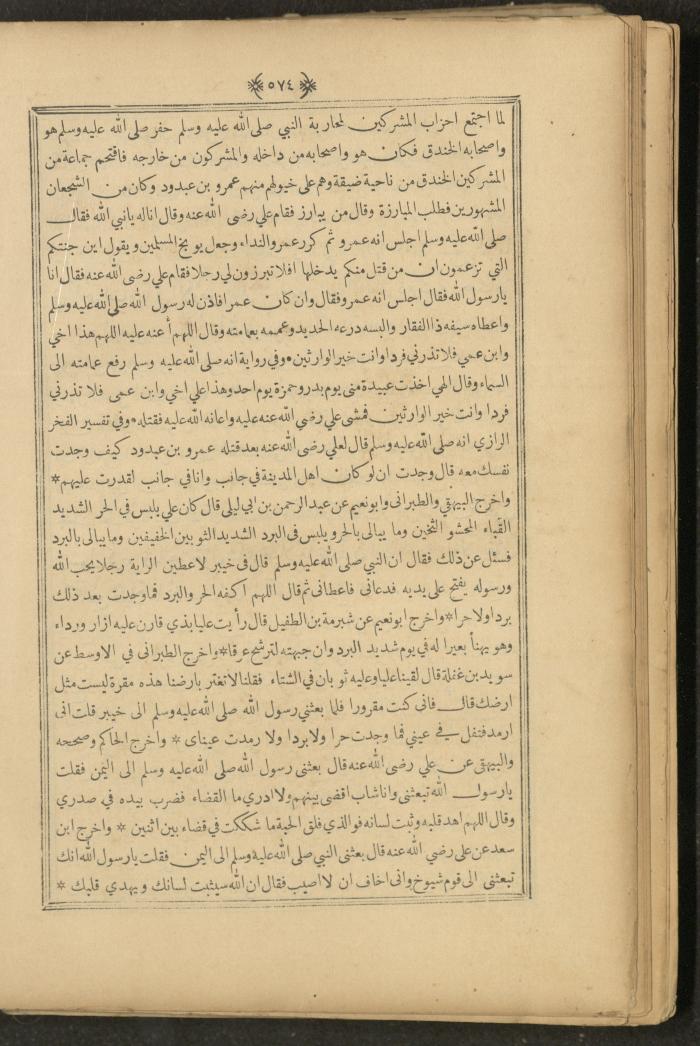 ٥٧٤
لما اجتمع احزاب المشركين لمحاربة النبي صلى الله عليه وسلم حفر صلى الله عليه وسلم هو
واصحابه الخندق فكان هو واصحابه من داخله والمشركون من خارجه فاقتحم جماعة من
المشركين الخندق من ناحية ضيقة وهم على خيولهم منهم عمرو بن عبدود وكان من الشجعان
المشهورين فطلب المبارزة وقال من يبارز فقام علي رضى الله عنه وقال انا له يانبي الله فقال
صلى الله عليه وسلم اجلس انه عمرو ثم كرر عمرو النداء وجعل يوبخ المسلمين ويقول اين جنتكم
التي تزعمون ان من قتل منكم يدخلها افلا تبرزون لي رجلا فقام علي رضى الله عنه فقال انا
يارسول الله فقال اجلس انه عمرو فقال وان كان عمرا فاذن له رسول الله صلى الله عليه وسلم
واعطاه سيفه ذا الفقار والبسه درعه الحديد وعممه بعمامته وقال اللهم أعنه عليه اللهم هذا اخي
وابن عمي فلا تذرني فردا وانت خير الوارثين * وفي رواية انه صلى الله عليه وسلم رفع عمامته الى
السماء وقال الهي اخذت عبيدة منى يوم بدر وحمزة يوم احد وهذا علي اخي وابن عمى فلا تذرني
فردا وانت خير الوارثين فمشى علي رضى الله عنه عليه واعانه الله عليه فقتله * وفي تفسير الفخر
الرازي انه صلى الله عليه وسلم قال لعلي رضى الله عنه بعد قتله عمرو بن عبدود كيف وجدت
نفسك معه قال وجدت ان لو كان اهل المدينة في جانب وانا في جانب لقدرت عليهم *
واخرج البيهقي والطبراني وابو نعيم عن عبد الرحمن بن ابي ليلى قال كان علي يلبس في الحر الشديد
القباء المحشو الثخين وما يبالى بالحر ويلبس فى البرد الشديد الثوبين الخفيفين وما يبالى بالبرد
فسئل عن ذلك فقال ان النبي صلى الله عليه وسلم قال فى خيبر لاعطين الراية رجلا يحب الله
ورسوله يفتح على يديه فدعانى فاعطانى ثم قال اللهم اكفه الحر والبرد فما وجدت بعد ذلك
بردا ولا حرا * واخرج ابو نعيم عن شبرمة بن الطفيل قال رأيت عليا بذي قار عليه ازار ورداء
وهو يهنأ بعيرا له في يوم شديد البرد وان جبهته لترشح عرقا * واخرج الطبرانى في الاوسط عن
سويد بن غفلة قال لقينا عليا وعليه ثوبان في الشتاء فقلنا لا تغتر بارضنا هذه مقرة ليست مثل
ارضك قال فانى كنت مقرورا فلما بعثني رسول الله صلى الله عليه وسلم الى خيبر قلت انى
ارمد فتفل في عيني فما وجدت حرا ولا بردا ولا رمدت عيناى * واخرج الحاكم وصححه
والبيهقى عن علي رضى الله عنه قال بعثنى رسول الله صلى الله عليه وسلم الى اليمن فقلت
يارسول الله تبعثنى وانا شاب اقضى بينهم ولا ادري ما القضاء فضرب بيده في صدري
وقال اللهم اهد قلبه وثبت لسانه فوالذي فلق الحبة ما شككت في قضاء بين اثنين * واخرج ابن
سعد عن على رضي الله عنه قال بعثنى النبي صلى الله عليه وسلم الى اليمن فقلت يارسول الله انك
تبعثنى الى قوم شيوخ وانى اخاف ان لا اصيب فقال ان الله سيثبت لسانك ويهدي قلبك *